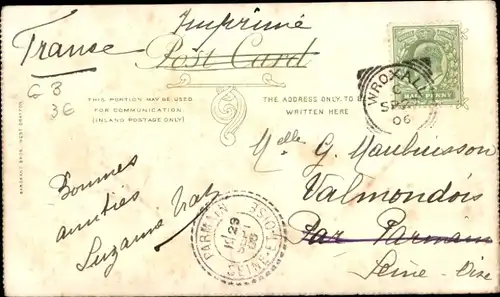 Imprimé
France
Post Card
G B
3E
THIS PORTION MAY BE USED
FOR COMMUNICATION
(INLAND POSTAGE ONLY)
THE ADDRESS ONLY TO BE
WRITTEN HERE
WROXALL
C
SP
06
HALF PENNY
Melle G. Maubuisson
Valmondois
Par Parmain
Seine-Oise
Bonnes
amitiés
Suzanne
PARMAIN
23
06
SEINE-ET-OISE